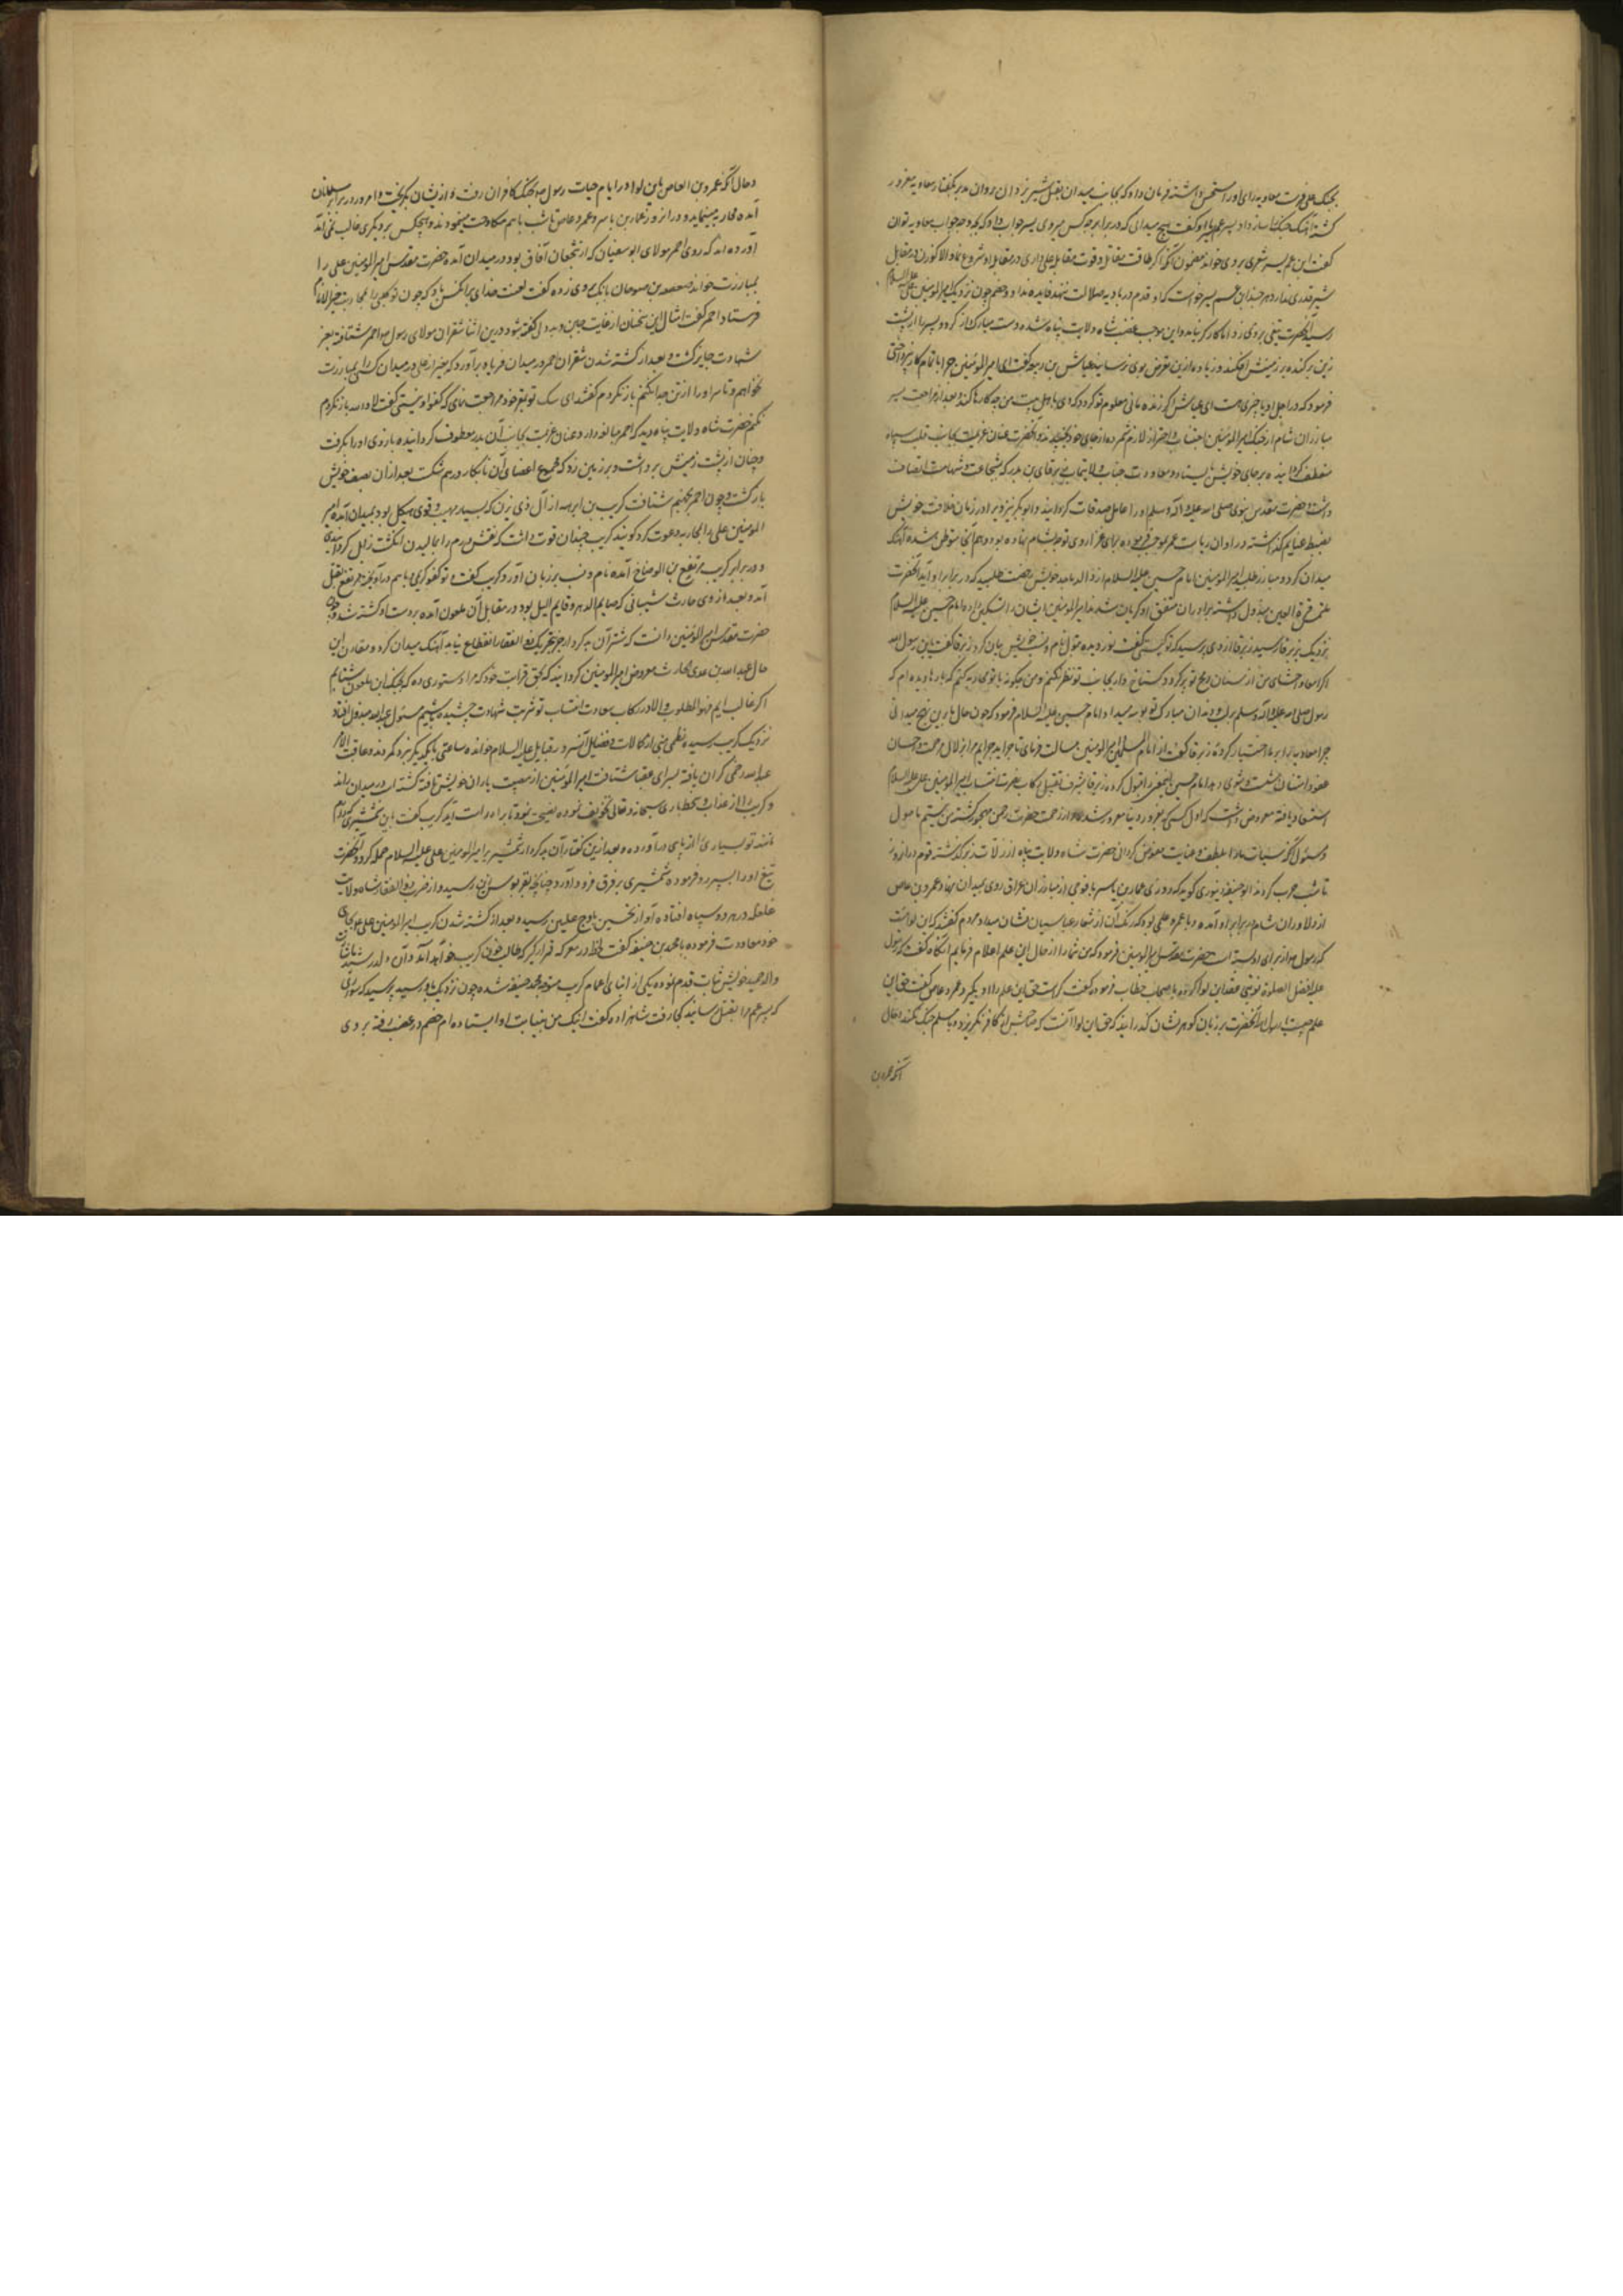 بجنگ علی فرست معاویه رای او را مستحسن داشته فرمان داد که بجانب میدان
کشته آهنگ جنگ ساز داد پسر عم با او گفت هیچ میدانی که در برابر چه کس میروی بسر جواب داد که بچه وجه جواب معاویه توان
گفت این عم بسر شعری بروی خواند مضمون آنکه اگر طاقت مقاتله و قوت مقابله علی داری در مقابل او شروع نما والا
شیر قدری ندارد هر چند ابن عم بسر خواست که او قدم در بادیه ضلالت ننهد فایده نداد و خصم چون نزدیک امیرالمومنین علی علیه السلام
رسید آنحضرت تیغی بروی زد اما کارگر نیامد و این موجب غضب شاه ولایت پناه شده دست مبارک دراز کرد و بسر را از پشت
زین برکنده بر زمینش افکند و زیاده ازین تعرض بوی نرسانید عیاش بن ربیعه گفت ای امیرالمومنین چرا باتمام کار نپرداختی
فرمود که در اجل او تاخیری هست ای عیاش اگر زنده مانی معلوم تو گردد که وی با اهل بیت من چه کارها کند و بعد از مراجعت بسر
مبارزان شام از جنگ امیرالمومنین اجتناب و احتراز لازم شمرده از جای خود نجنبیدند و آنحضرت عنان عزیمت بجانب قلب سپاه
منعطف گردانیده بر جای خویش بایستاد و معاودت جناب ولایتمآب زبرقان بن بدر که بشجاعت و شهامت اتصاف
داشت و حضرت مقدس نبوی صلی الله علیه و آله وسلم او را عامل صدقات گردانید و ابوبکر نیز ویرا در زمان خلافت خویش
بضبط غنایم گذاشته در اوان ریاست عمر بموجب فرموده برای غزا روی توجه بشام نهاده بود و هم آنجا متوطن شده آهنگ
میدان کرد و مبارز طلبید امیرالمومنین امام حسین علیه السلام از والد ماجد خویش رخصت طلبید که در برابر او آید آنحضرت
ملتمس قرة العین مبذول داشته برادران مشفق او گریان شدند امیرالمومنین ایشان را تسکین داده امام حسین علیه السلام
نزدیک بزبرقان رسید زبرقان از وی پرسید که تو کیستی گفت نور دیده بتول نام و نسب خویش بیان کرد زبرقان گفت یا ابن رسول الله
اگر امعا و احشای من از سنان رمح تو پر گردد گستاخ وار بجانب تو نظر نکنم و من چگونه با تو محاربه کنم که بارها دیده ام که
رسول صلی الله علیه و آله وسلم بر لب و دندان مبارک تو بوسه میداد امام حسین علیه السلام فرمود که چون حال باین نهج میدانی
چرا معاویه را بر ما اختیار کرده زبرقان گفت از امام المسلمین امیرالمومنین مسالت فرمای تا جراید جرایم مرا بزلال مرحمت و احسان
عفو و امتنان شست و شوی دهد امام حسین این معنی را قبول کرده زبرقان بشرف تقبیل رکاب نصرت انتساب امیرالمومنین علی علیه السلام
استسعاد یافته معروض داشت که اول کسی که بغرور دنیا مغرور شده و از رحمت حضرت رحمن مهجور گشته من نیستم مامول
و مسئول آنکه سیئات ما را بلطف و عنایت معوض گردانی حضرت شاه ولایت پناه از زلات زبرقان گذشته قوم در آن روز
تا شب حرب کردند ابو حنیفه دینوری گوید که در روزی عمار بن یاسر با قومی از مبارزان عراق روی بمیدان نهاد و عمرو بن عاص
از دلاوران شام در برابر او آمده و با عمرو علمی بود که رنگ آن از شعار عباسیان نشان میداد و مردم گفتند که این لوائیست
که رسول خدا از برای او بسته است حضرت مقدس امیرالمومنین فرمود که من شما را از حال این علم اعلام فرمایم آنگاه گفت که رسول
علیه افضل الصلوة نوبتی عقد این لوا کرده باصحاب خطاب فرموده گفت کیست که بحق این علم را و بگیرد عمرو عاص گفت حق این
علم چیست یا رسول الله آنحضرت بر زبان گوهر نشان گذرانید که حق این لوا آنست که صاحبش از کافر نگریزد و با مسلم جنگ نکند و حال
آنکه عمرو بن
و حال آنکه عمرو بن العاص باین لوا در ایام حیات رسول بجنگ کافران رفت و از ایشان بگریخت و امروز در برابر مسلمانان
آمده محاربه مینماید و در آنروز عمار بن یاسر و عمرو عاص تا شب باهم مکاوحت مینمودند و هیچکس بر دیگری غالب نمی آمد
آورده اند که روزی احمر مولای ابوسفیان که از شجعان آفاق بود در میدان آمده حضرت مقدس امیرالمومنین علی را
بمبارزت خواند صعصعة بن صوحان بانگ بروی زده گفت لعنت خدای بر آنکس باد که چون تو کلبی را بمحاربه خیر الانام
فرستاد احمر گفت امثال این سخنان از غایت جبن و بددلی گفته شود درین اثنا شقران مولای رسول با احمر شتافته بعز
شهادت فایز گشت و بعد از کشته شدن شقران احمر در میدان فریاد برآورد که بغیر از علی در میدان کسی را بمبارزت
نخواهم و تا سر او را از تن جدا نکنم باز نگردم گفتند ای سگ تو بقر خود مراجعت نمای که کفو او نیستی گفت لا والله باز نگردم
نکنم حضرت شاه ولایت پناه دید که احمر مبالغه دارد عنان عزیمت بجانب آن بدبخت معطوف گردانیده بازوی او را بگرفت
و چنان از پشت زینش برداشت و بر زمین زد که مجموع اعضای آن نابکار درهم شکست بعد از آن بصف خویش
بازگشت و چون احمر بجهنم شتافت کریب بن ابرهه از آل ذی یزن که بسیار مهیب و قوی هیکل بود بمیدان آمده امیر
المومنین علی را بمحاربه دعوت کرد گویند کریب چندان قوت داشت که نقش درم را بمالیدن انگشت زایل گردانیدی
و در برابر کریب مرتفع بن الوضاح آمده نام و نسب بر زبان آورد کریب گفت تو کفو کریمی باهم در آویخته مرتفع بقتل
آمد و بعد از وی حارث شیبانی که صایم الدهر و قایم اللیل بود در مقابل آن ملعون آمده بر دست او کشته شد و چون
حضرت مقدس امیرالمومنین دانست که شر آن بدکردار جز بتحریک ذوالفقار انقطاع نیابد آهنگ میدان کرد و مقارن این
حال عبدالله بن عدی الحارث معروض امیرالمومنین گردانید که بحق قرابت خود که مرا دستوری ده که بجنگ این ملعون شتابم
اگر غالب آیم فهوالمطلوب والا در رکاب سعادت انتساب تو شربت شهادت چشیده باشم مسئول عبدالله مبذول افتاد
نزدیک کریب رسیده نظمی مبنی از کمالات و فضایل آنسرور قبایل علیه السلام خوانده ساعتی با یکدیگر نبرد کردند و عاقبت الامر
عبدالله زخمی گران یافته بسرای عقبا شتافت امیرالمومنین از مصیبت یاران خویش تافته گشته اسب در میدان راند
و کریب را از عذاب و سخط باری سبحانه و تعالی تخویف نموده نصیحت نمود تا براه راست آید کریب گفت باین شمشیری که دارم
مانند تو بسیاری را از پای درآورده ام و بعد ازین گفتار آن بدکردار شمشیر بر امیرالمومنین علی علیه السلام حمله کرد و آنحضرت
تیغ او را بسپر رد فرموده شمشیری بر فرق او فرود آورد چنانچه بقربوس زین رسید و از ضرب ذوالفقار شاه ولایت
غلغله در هر دو سپاه افتاده آواز تحسین باوج علیین رسید و بعد از کشته شدن کریب امیرالمومنین علی بجای
خود معاودت فرموده با محمد بن حنیفه گفت لحظه در معرکه قرار گیر که طالب خون کریب خواهد آمد و آن ولد رشید بفرمان
والد مجید خویش ثبات قدم نموده یکی از ابنای اعمام کریب متوجه محمد حنیفه شده چون نزدیک باو رسید پرسید که سواری
که پسر عم مرا بقتل رسانید کجا رفت شاهزاده گفت اینک من بنیابت او ایستاده ام خصم در غضب رفته بروی